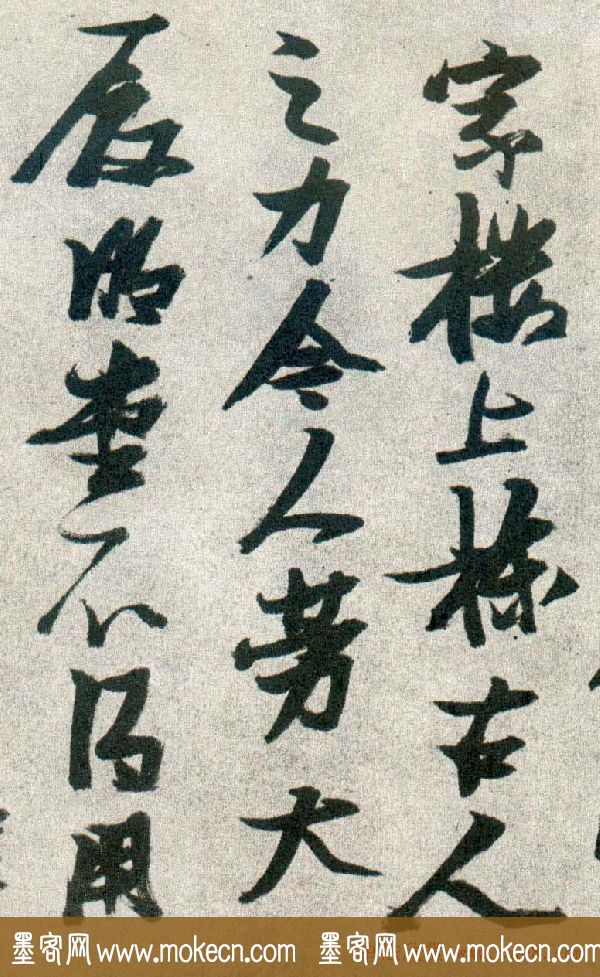 家楼上棟古人
之力令人劳大
厦明堂不得用
墨客网 www.mokecn.com 墨客网 www.mokecn.com